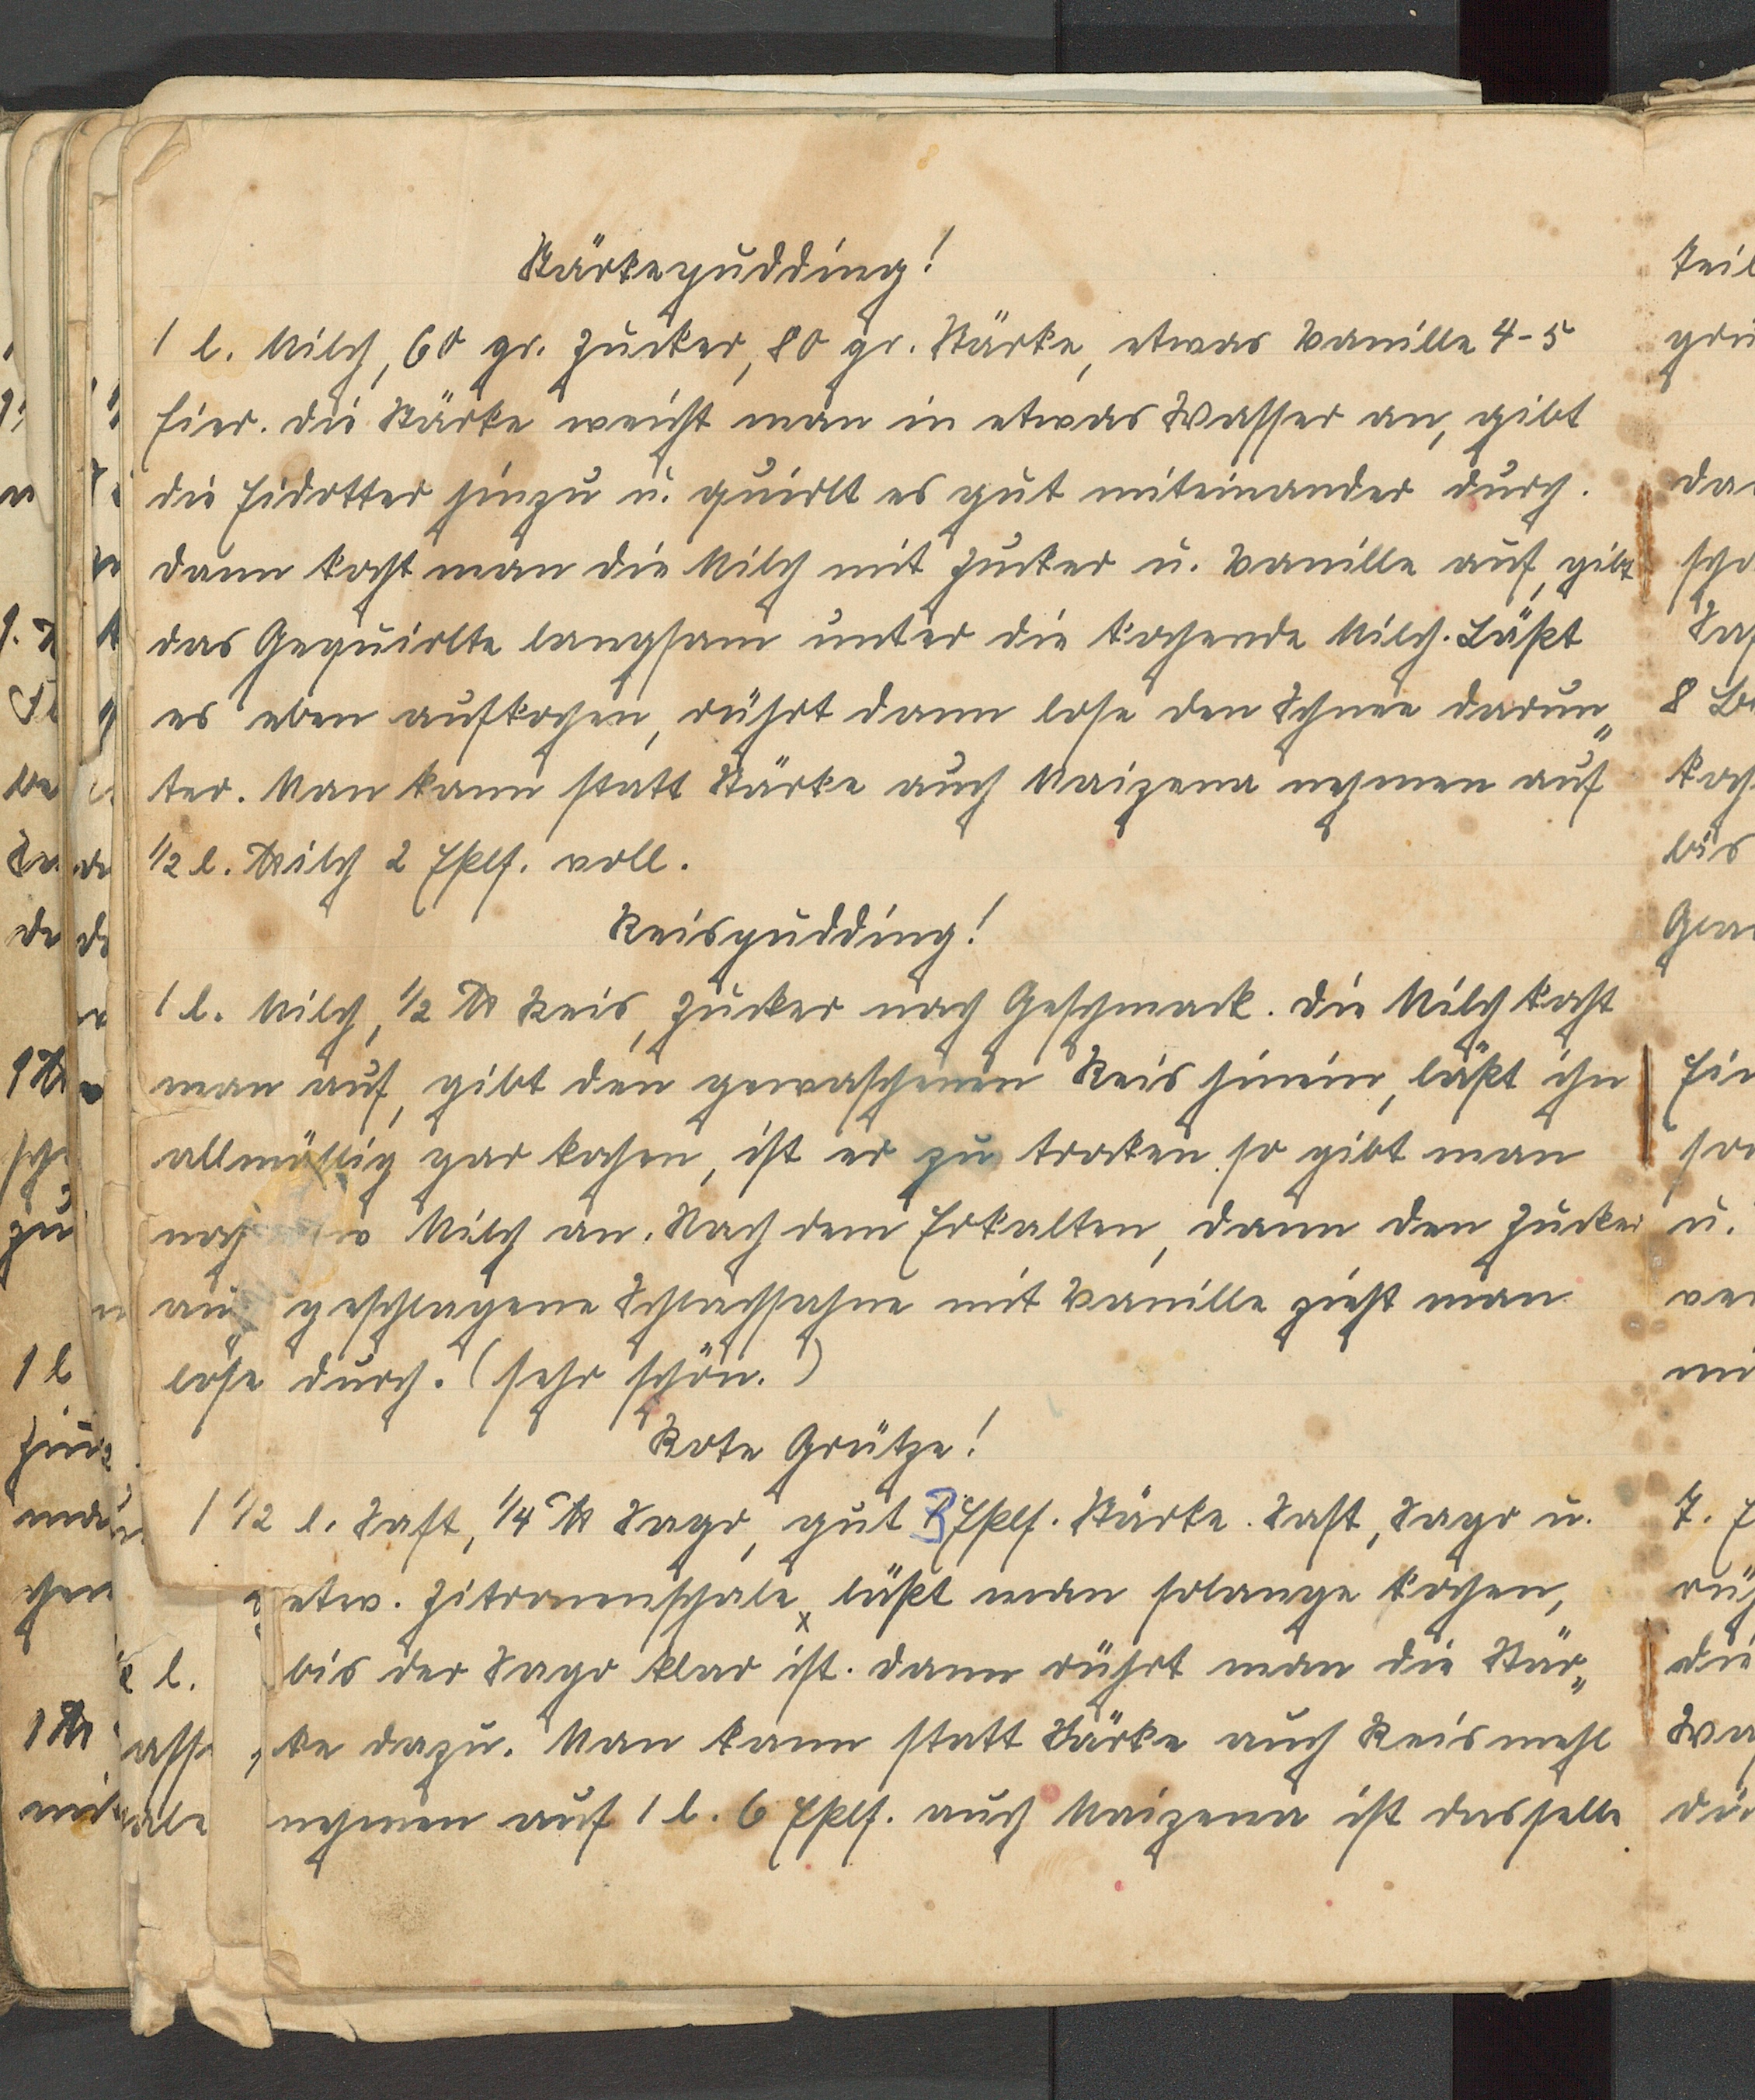 Stärkepudding!
1 l. Milch, 60 gr. Zucker, 80 gr. Stärke, etwas Vanille 4-5
Eier. Die Stärke weicht man in etwas Wasser an, gibt
die Eidotter hinzu u. quirlt es gut miteinander durch.
Dann kocht man die Milch mit Zucker u. Vanille auf, gibt
das Gequirlte langsam unter die kochende Milch. Läßt
es eben aufkochen, rührt dann lose den Schnee darun„
ter. Man kann statt Stärke auch Maizena nehmen auf
1/2 l. Milch 2 Eßlf. voll.
Reispudding!
1 l. Milch, 1/2 ℔ Reis, Zucker nach Geschmack. Die Milch kocht
man auf, gibt den gewaschenen Reis hinein, läßt ihn
allmählig gar kochen, ist er zu trocken so gibt man
noch Milch an. Nach dem Erkalten, dann den Zucker
geschlagene Schlachsahne mit Vanille zieht man
lose durch. (sehr schön.)
Rote Grütze!
1 1/2 l. Saft, 1/4 ℔ Sago, gut 3 Eßlf. Stärke. Saft, Sago u.
etw. Zitronenschale x läßt man solange kochen,
bis der Sago klar ist. Dann rührt man die Stär„
ke dazu. Man kann statt Stärke auch Reismehl
nehmen auf 1 l. 6 Eßlf. auch Maizena ist dasselbe.